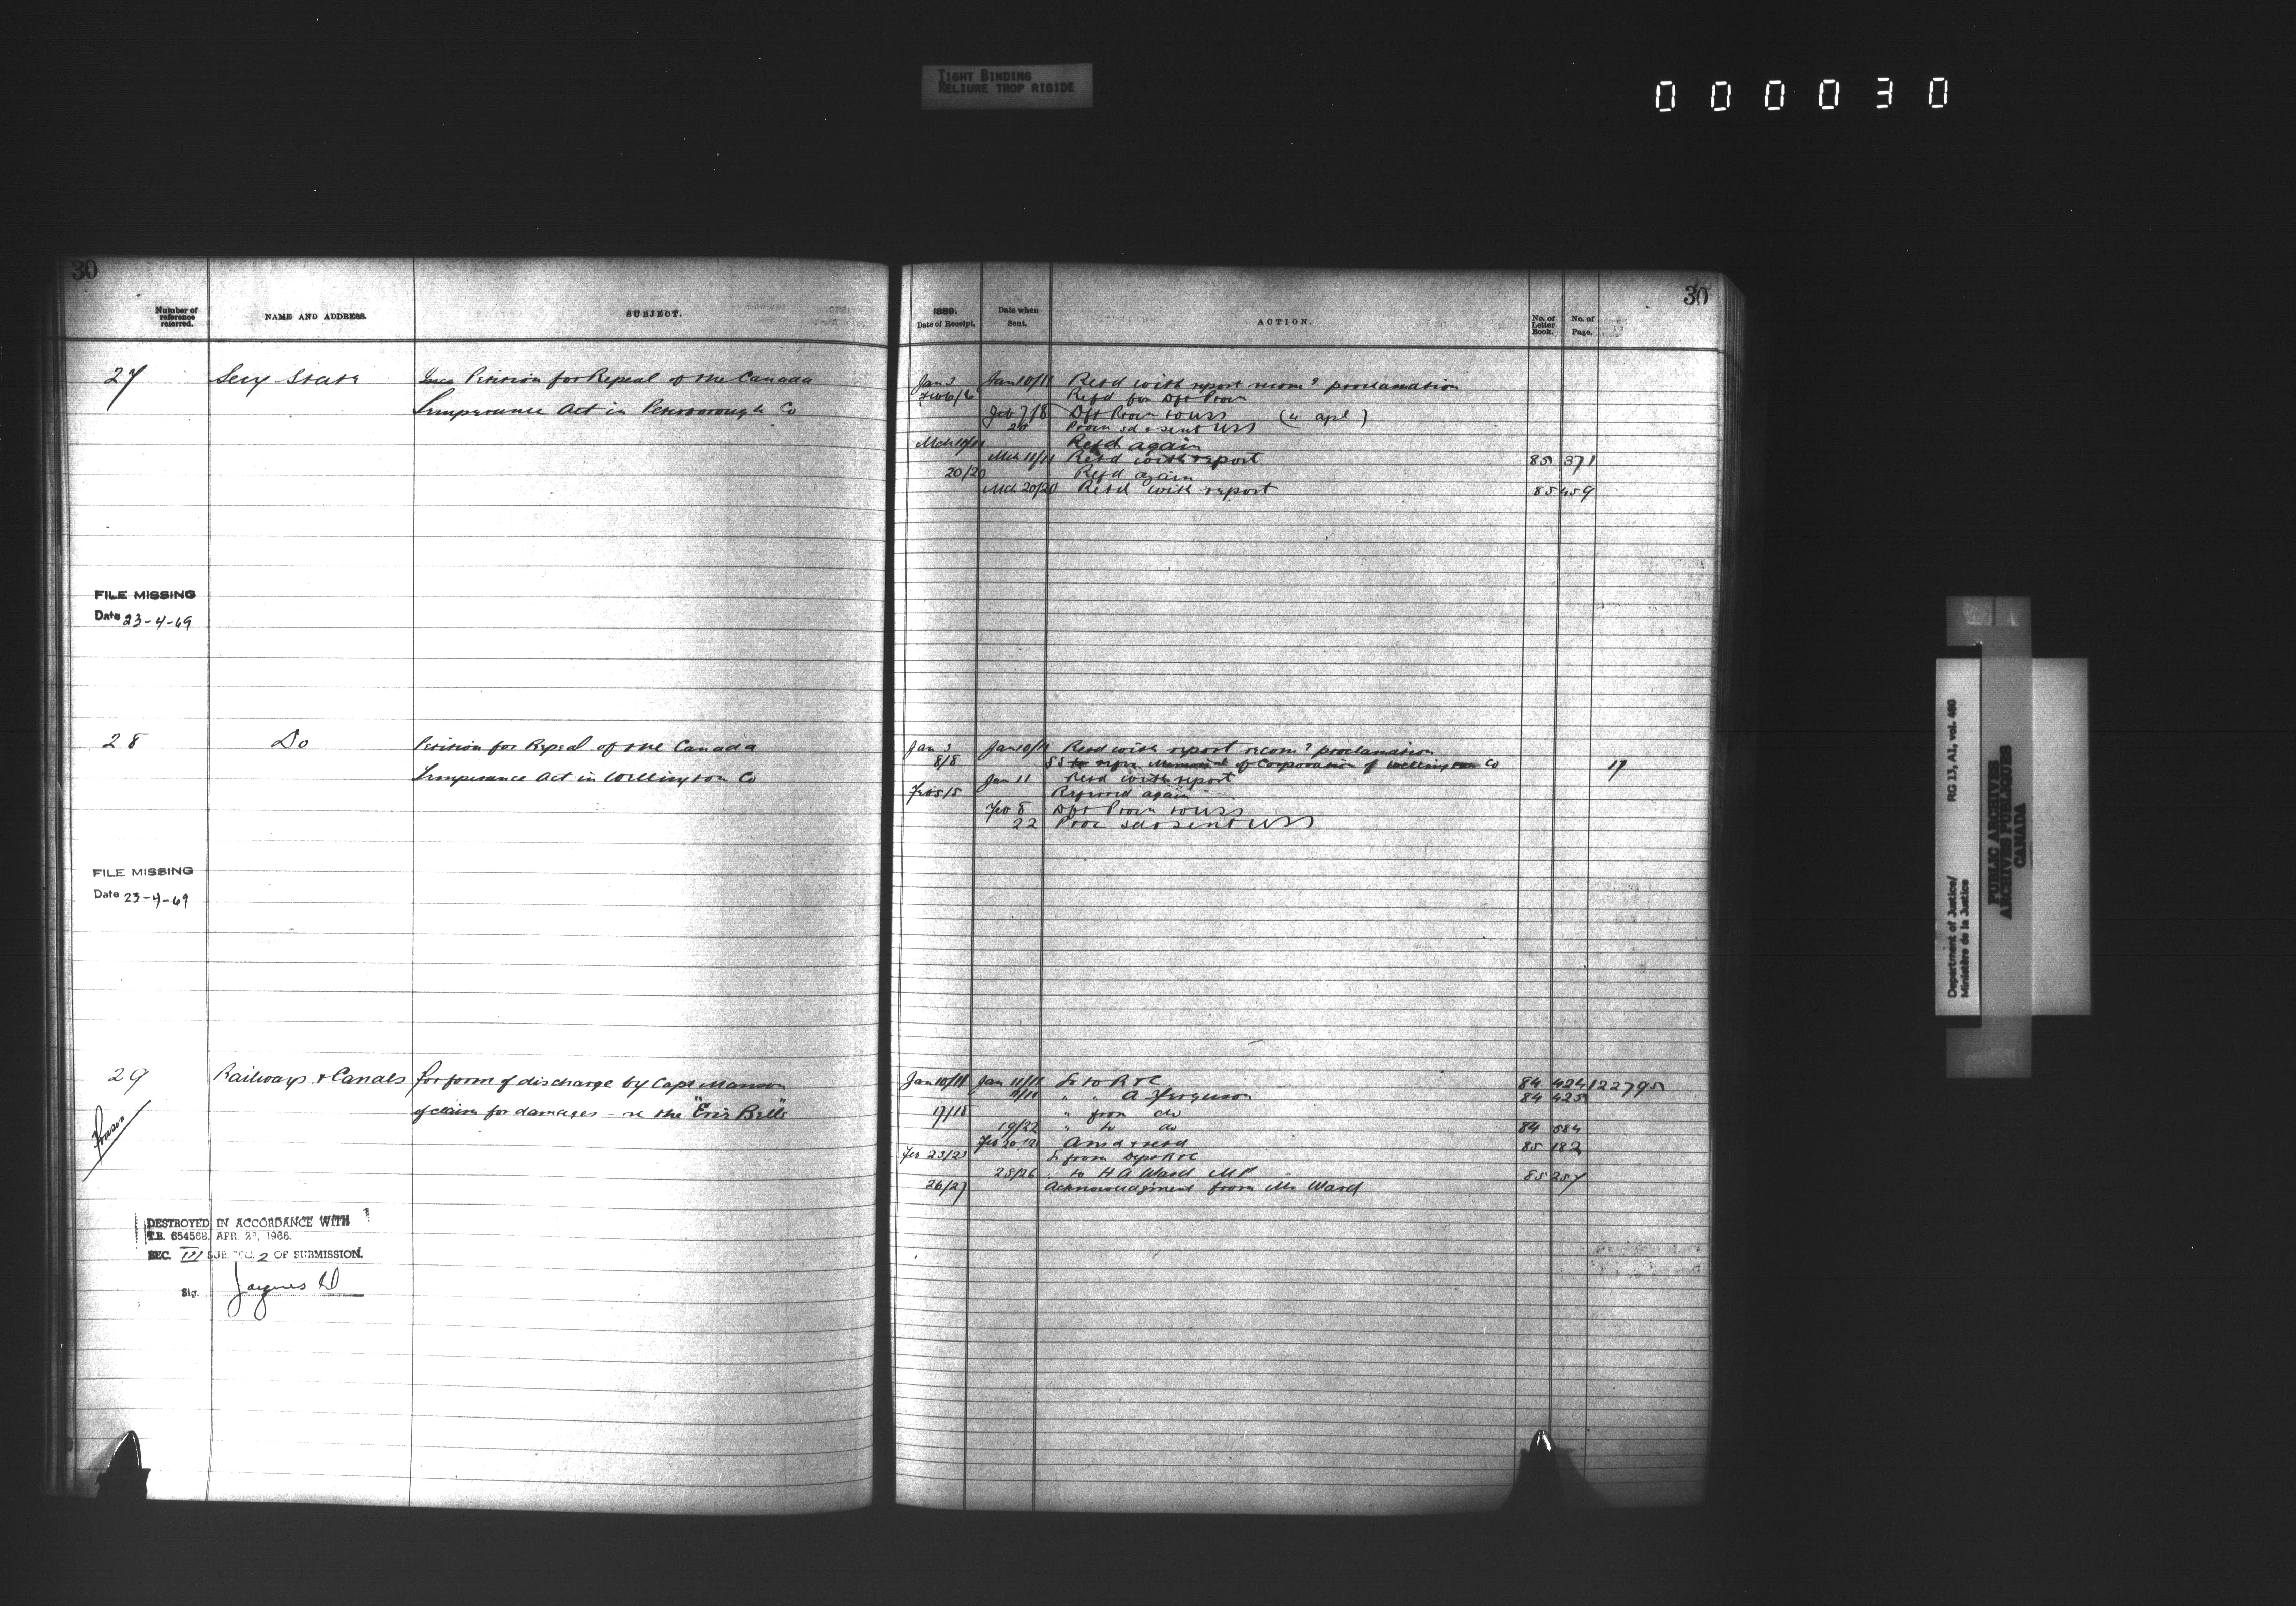 TIGHT BINDING
RELIURE TROP RIGIDE
000030
30
Number of reference referred.
NAME AND ADDRESS.
SUBJECT.
27
Secy State
Petition for Repeal of the Canada
Temperance Act in Peterborough Co
FILE MISSING
Date 23-4-69
28
Do
Petition for Repeal of the Canada
Temperance Act in Wellington Co
FILE MISSING
Date 23-4-69
29
Railways & Canals
for form of discharge by Capt Manson
of claim for damages - re the "Erie Belle"
DESTROYED IN ACCORDANCE WITH
T.B. 654568, APR. 1966.
SEC. III SUB SEC. 2 OF SUBMISSION.
Sig.
30
1889.
Date of Receipt.
Date when Sent.
ACTION.
No. of Letter Book.
No. of Page.
Jan 3 Jan 10/11 Retd with report recomg proclamation
Feb 6/6 Refd for Dft Procn
Feb 7/8 Dft Procn to USS
Procn sd & sent USS
Refd again
Mch 11/11 Retd with report 85 371
20/20 Refd again
Mch 20/20 Retd with report 85 459
Jan 3 Jan 10/11 Retd with report recomg proclamation
8/8 SS to refer Memorial of Corporation of Wellington Co 17
Jan 11 Retd with report
Feb 5/5 Referred again
Feb 8 Dft Procn to USS
22 Procn sd & sent USS
Jan 10/11 Jan 11/11 Lr to R & C 84 424 122795
11/11 " " A Ferguson 84 425
17/18 " from do
19/22 " to do 84 584
Ansd & retd 85 182
Feb 23/23 Lr from Dept R & C
25/26 to H A Ward MP 85 257
26/27 Acknowledgment from Mr Ward
Department of Justice/
Ministère de la Justice
RG 13, A1, vol. 480
PUBLIC ARCHIVES
ARCHIVES PUBLIQUES
CANADA